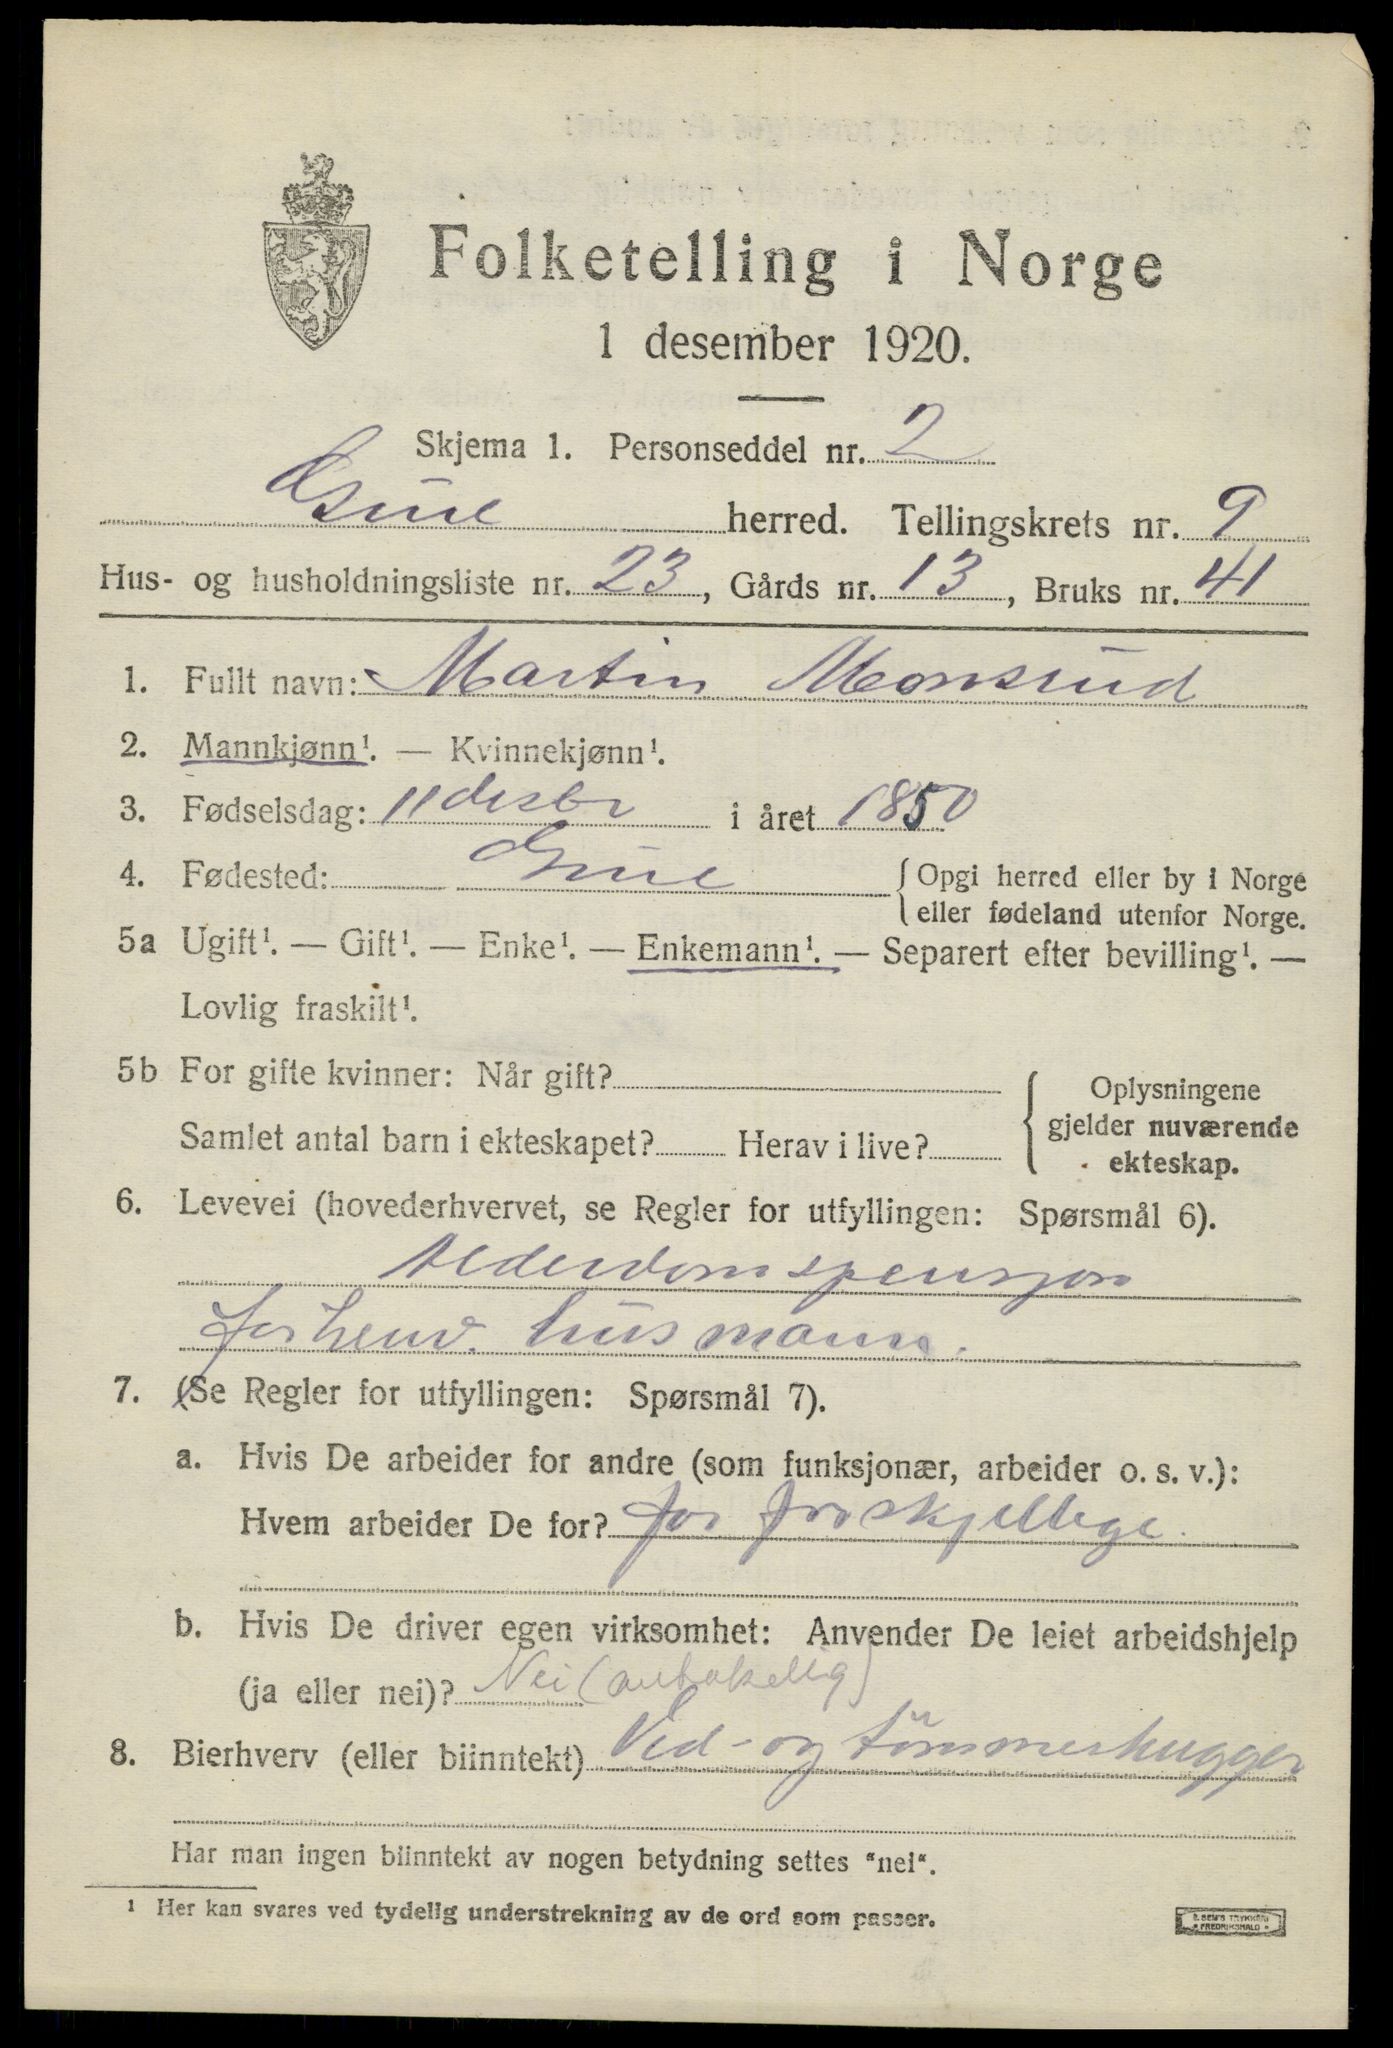 Folketelling i Norge
1 desember 1920.
Skjema 1. Personseddel nr. 2
Grue herred. Tellingskrets nr. 9
Hus- og husholdningsliste nr. 23, Gårds nr. 13, Bruks nr. 41
1. Fullt navn: Martin Monsrud
2. Mannkjønn¹. — Kvinnekjønn¹.
3. Fødselsdag: 11 desbr i året 1850
4. Fødested: Grue {Opgi herred eller by i Norge
eller fødeland utenfor Norge.
5a Ugift¹. — Gift¹. — Enke¹. — Enkemann¹. — Separert efter bevilling¹. —
Lovlig fraskilt¹.
5b For gifte kvinner: Når gift?
Samlet antal barn i ekteskapet? Herav i live?
{Oplysningene
gjelder nuværende
ekteskap.
6. Levevei (hovederhvervet, se Regler for utfyllingen: Spørsmål 6).
Alderdomspensjon
forhenv. husmann.
7. (Se Regler for utfyllingen: Spørsmål 7).
a. Hvis De arbeider for andre (som funksjonær, arbeider o. s. v.):
Hvem arbeider De for? for forskjellige.
b. Hvis De driver egen virksomhet: Anvender De leiet arbeidshjelp
(ja eller nei)? Nei
8. Bierhverv (eller biinntekt) Ved- og tömmerhugger
Har man ingen biinntekt av nogen betydning settes "nei".
¹ Her kan svares ved tydelig understrekning av de ord som passer.